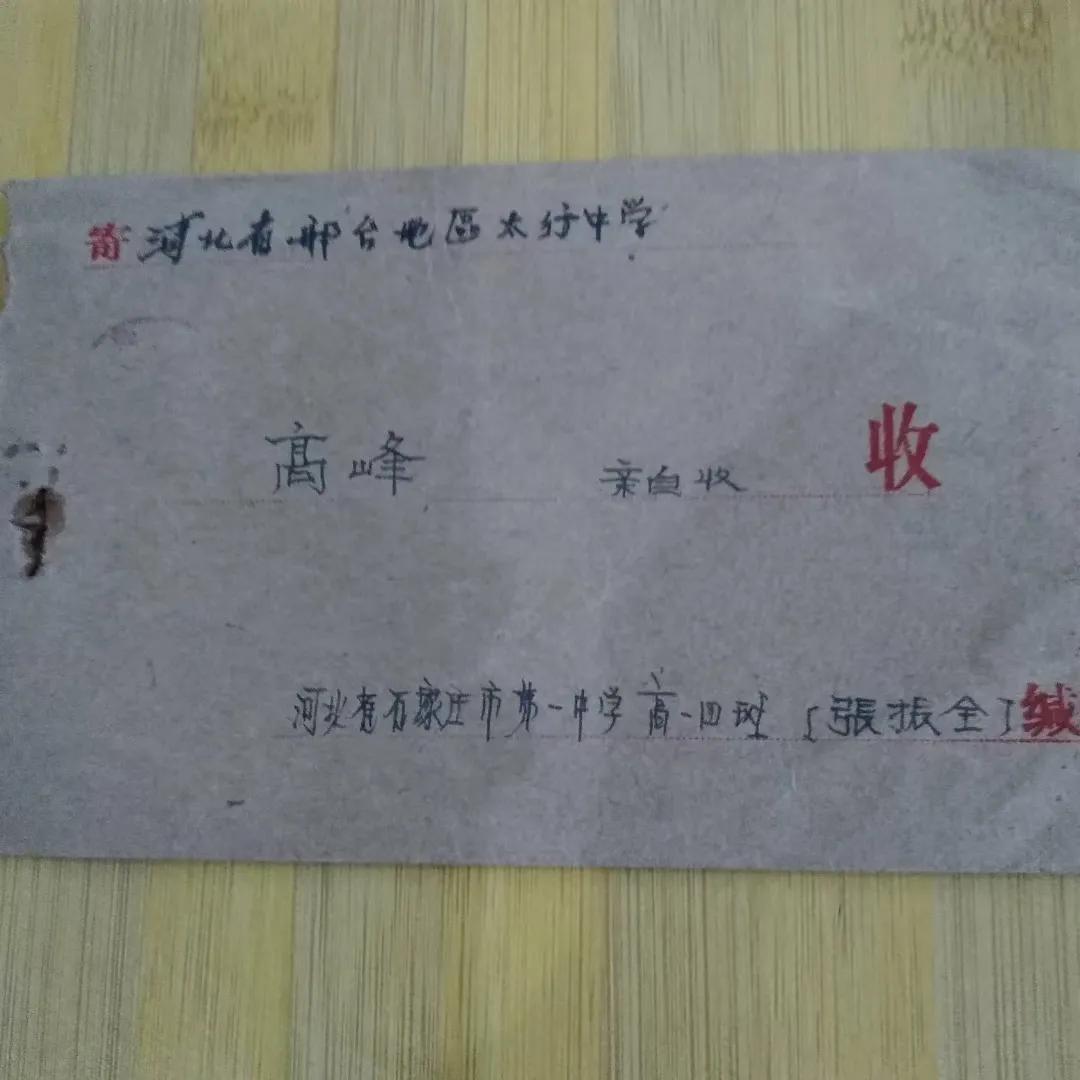 寄河北省邢台地區太行中学
高峰 亲自收 收
河北省石家庄市第一中学高一四班 [張振全] 缄